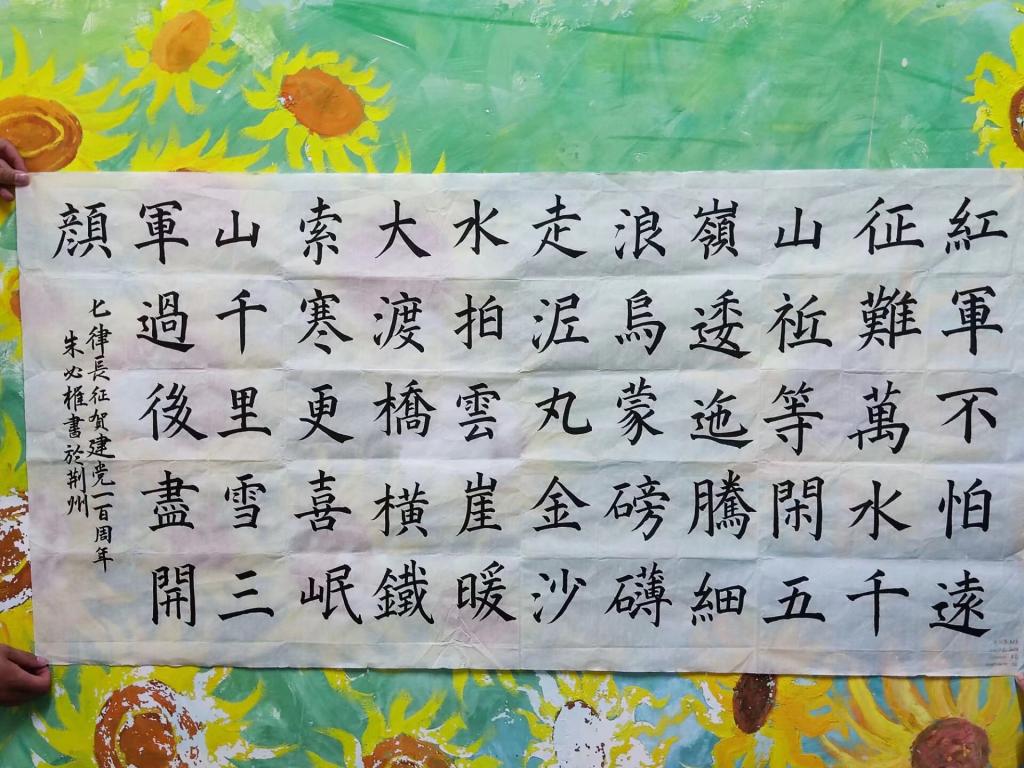 紅軍不怕遠
征難萬水千
山祗等閑五
嶺逶迤騰細
浪烏蒙磅礴
走泥丸金沙
水拍雲崖暖
大渡橋橫鐵
索寒更喜岷
山千里雪三
軍過後盡開
顔
七律長征賀建党一百周年
朱必書於荆州